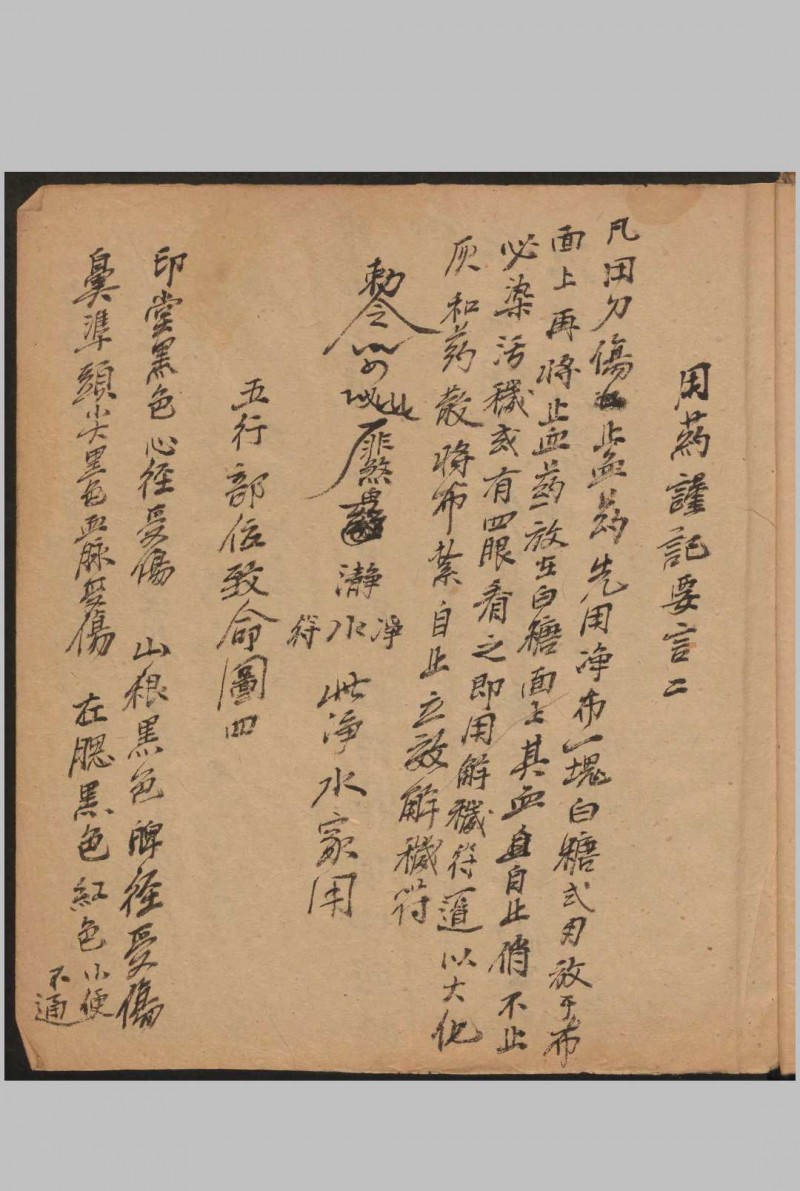 用药謹記要言二
凡用刀傷止血药先用净布一塊白糖弍刃放于布
面上再将止血药放在白糖面上其血自止倘不止
必染污穢或有四眼看之即用解穢符一道以火化
灰和药散将布紮自止立效解穢符
勅令 瀞 淨水符 此淨水家用
五行部位致命圖四
印堂黑色心徑受傷 山根黑色脾徑受傷
鼻準頭尖黑色血脉受傷 在腮黑色紅色小便不通